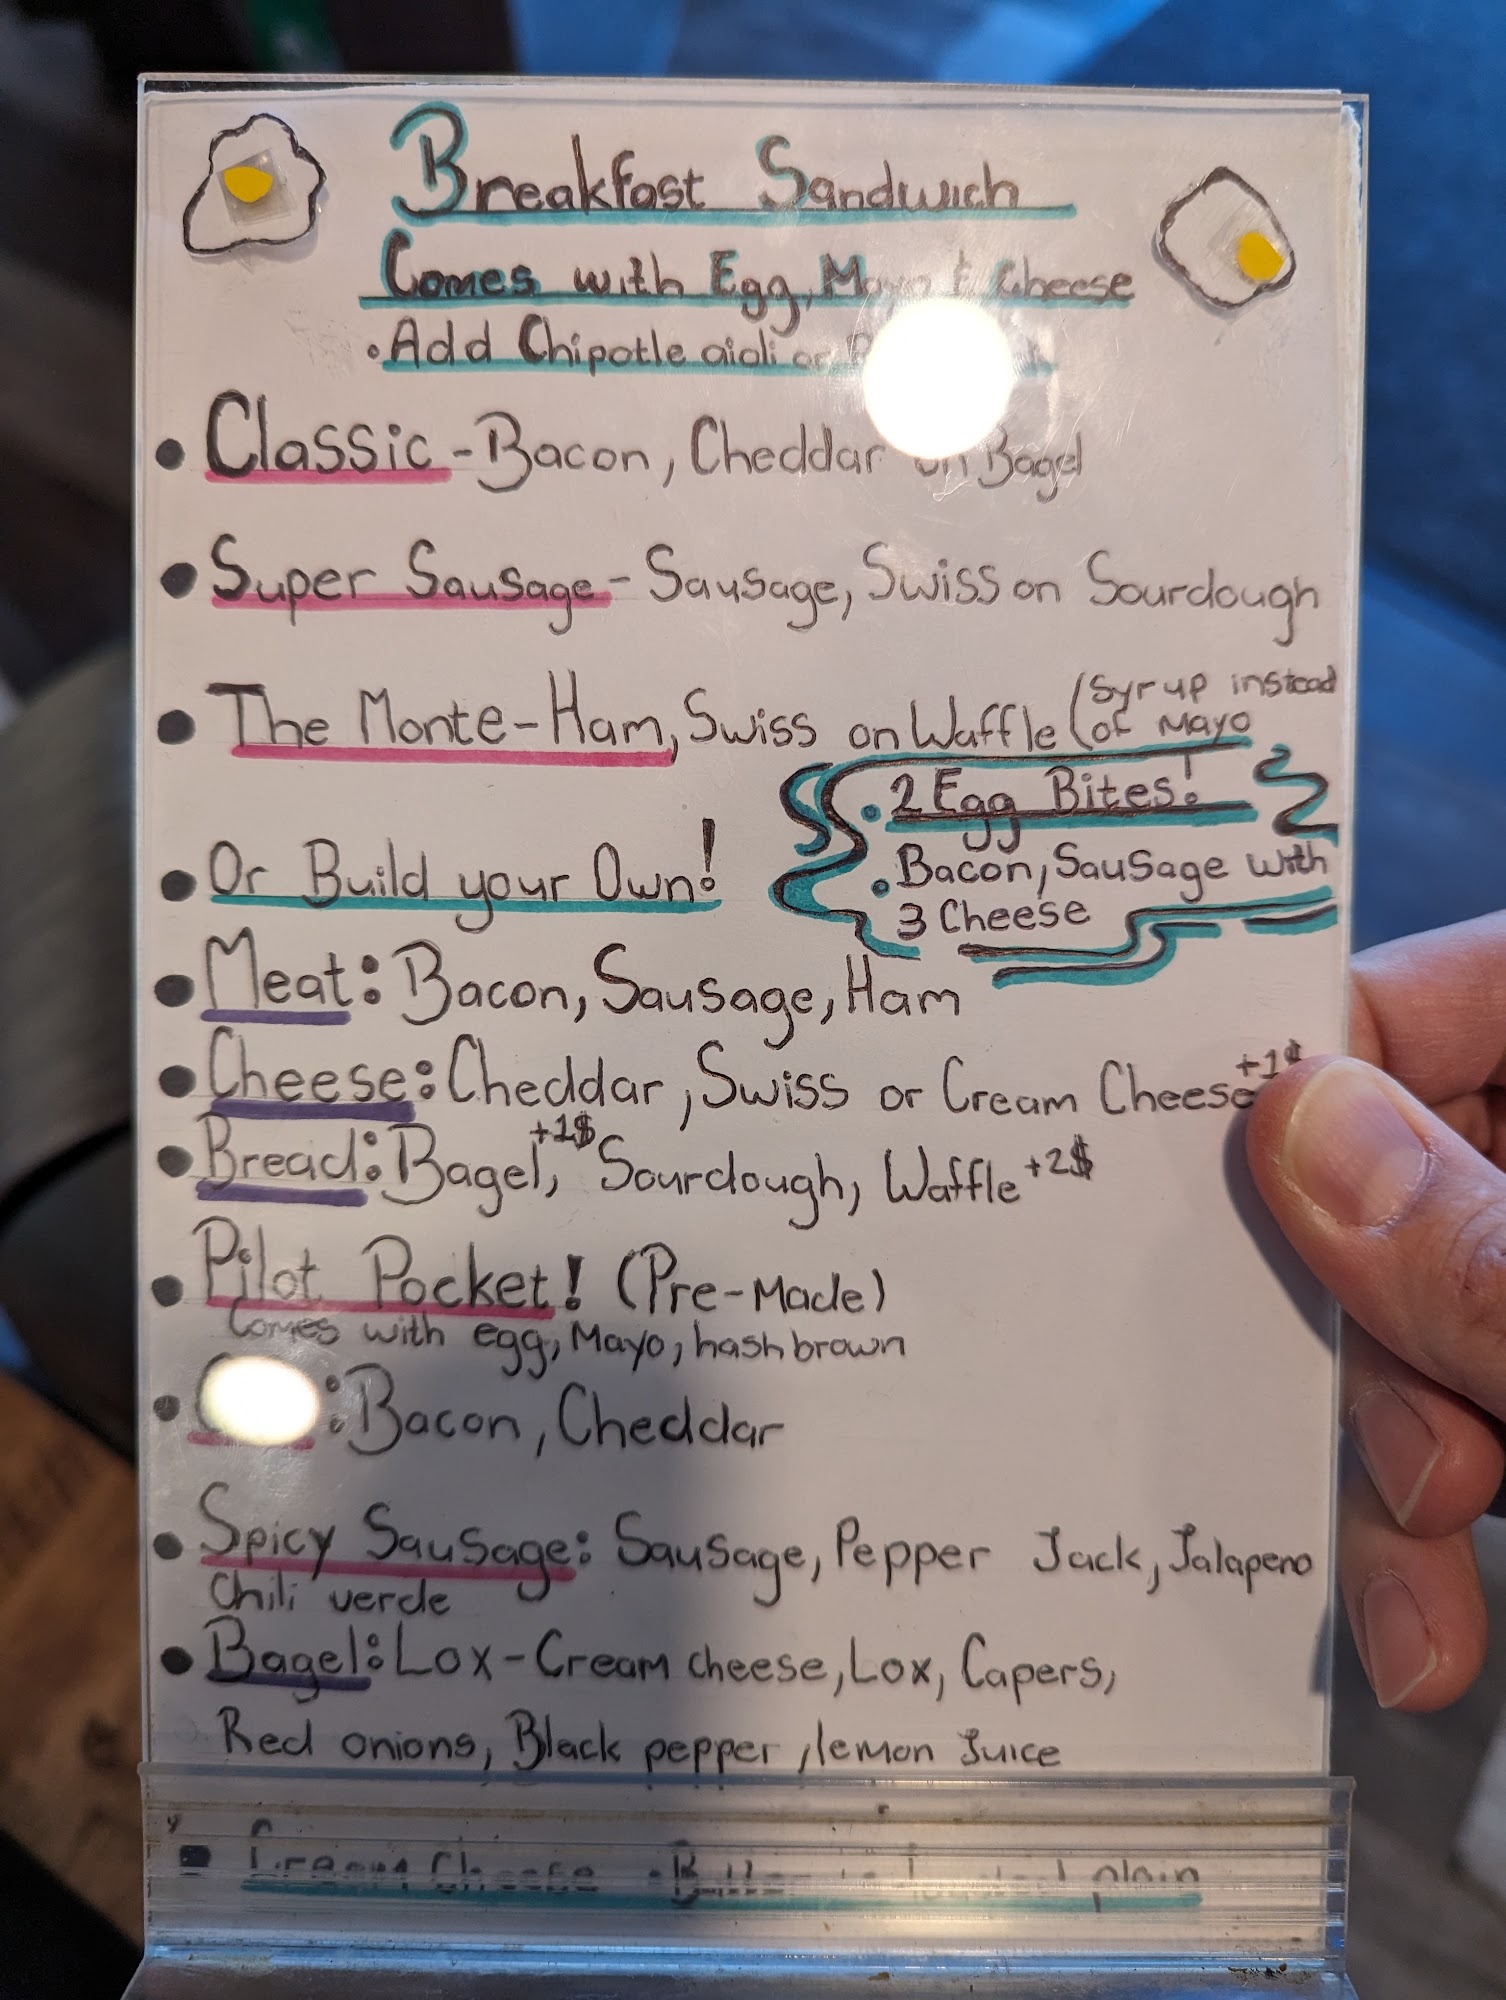 Breakfast Sandwich
Comes with Egg, Mayo & Cheese
• Add Chipotle aioli or
• Classic - Bacon, Cheddar on Bagel
• Super Sausage - Sausage, Swiss on Sourdough
• The Monte-Ham, Swiss on Waffle (Syrup instead
of Mayo
• 2 Egg Bites!
• Bacon, Sausage with
3 Cheese
• Or Build your Own!
• Meat: Bacon, Sausage, Ham
• Cheese: Cheddar, Swiss or Cream Cheese +1$
• Bread: Bagel, +1$ Sourdough, Waffle +2$
• Pilot Pocket! (Pre-Made)
Comes with egg, Mayo, hashbrown
• : Bacon, Cheddar
• Spicy Sausage: Sausage, Pepper Jack, Jalapeno
Chili verde
• Bagel: Lox - Cream cheese, Lox, Capers,
Red onions, Black pepper, lemon Juice
• Cream Cheese • plain